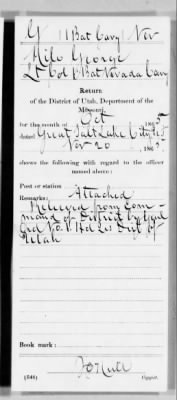 G 1 Bat Cavy Nev
Milo George
Lt Col 1 Bat Nevada Cavy
Return
of the District of Utah, Department of the
Missouri,
for the month of Oct, 1865
dated Great Salt Lake City
Nov 20, 1865
shows the following with regard to the officer
named above:
Post or station: Attached
Remarks: Relieved from Com-
mand of District by Genl
Ord No.
Utah
Book mark:
(546) Copyist.